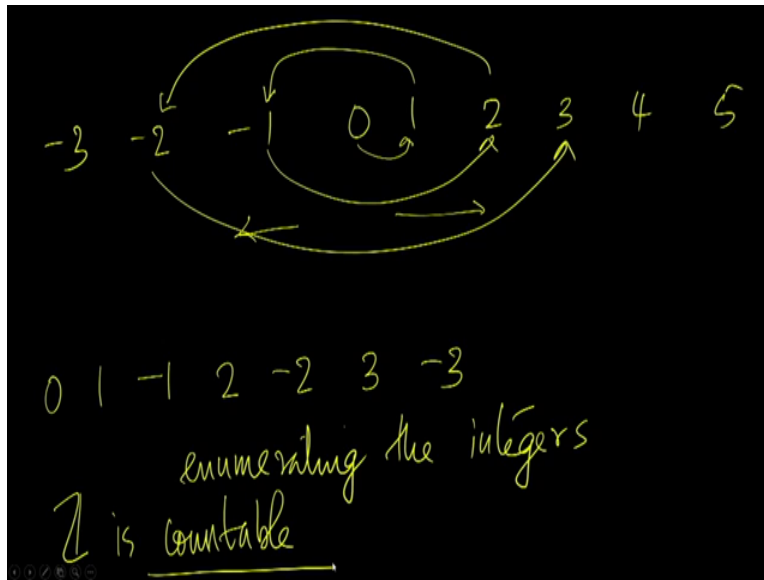 -3 -2 -1 0 1 2 3 4 5
0 1 -1 2 -2 3 -3
enumerating the integers
ℤ is countable